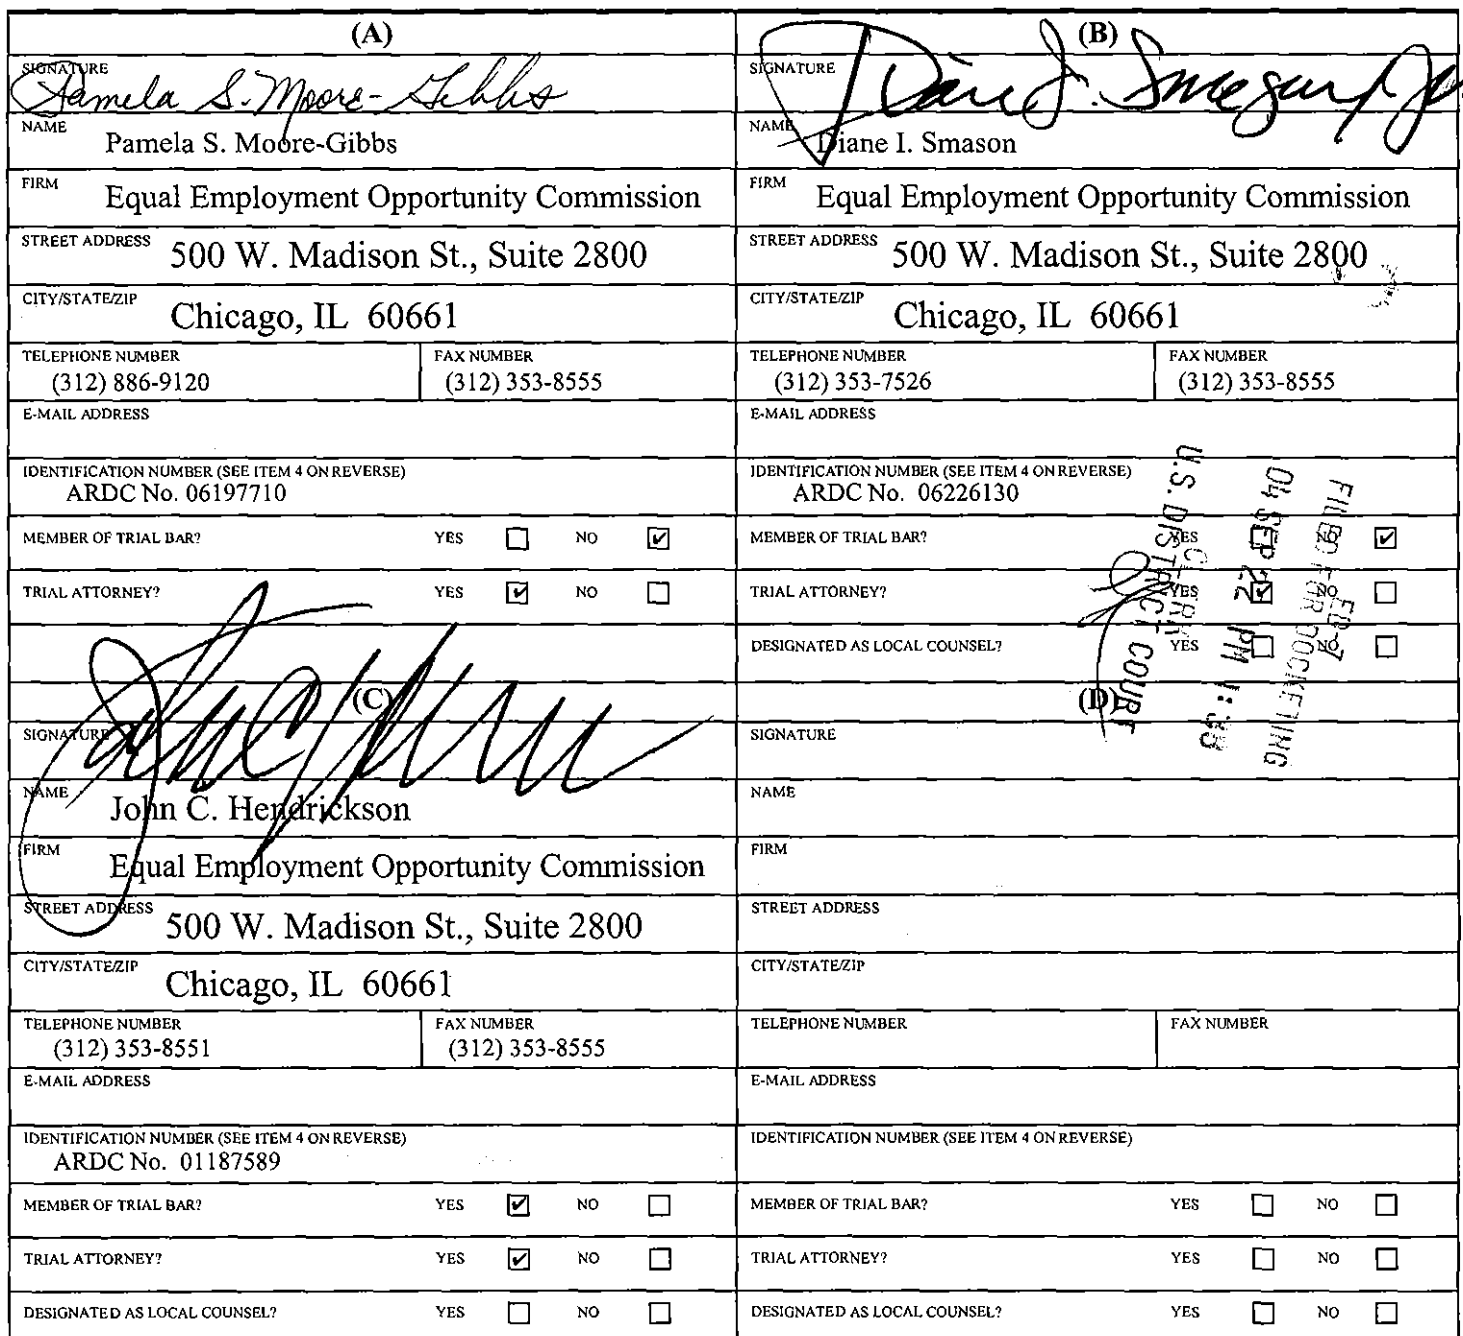 (A)
SIGNATURE
Pamela S. Moore-Gibbs
NAME
Pamela S. Moore-Gibbs
FIRM
Equal Employment Opportunity Commission
STREET ADDRESS
500 W. Madison St., Suite 2800
CITY/STATE/ZIP
Chicago, IL 60661
TELEPHONE NUMBER
(312) 886-9120
FAX NUMBER
(312) 353-8555
E-MAIL ADDRESS
IDENTIFICATION NUMBER (SEE ITEM 4 ON REVERSE)
ARDC No. 06197710
MEMBER OF TRIAL BAR? YES ☐ NO ☑
TRIAL ATTORNEY? YES ☑ NO ☐
(B)
SIGNATURE
NAME
Diane I. Smason
FIRM
Equal Employment Opportunity Commission
STREET ADDRESS
500 W. Madison St., Suite 2800
CITY/STATE/ZIP
Chicago, IL 60661
TELEPHONE NUMBER
(312) 353-7526
FAX NUMBER
(312) 353-8555
E-MAIL ADDRESS
IDENTIFICATION NUMBER (SEE ITEM 4 ON REVERSE)
ARDC No. 06226130
MEMBER OF TRIAL BAR? YES ☐ NO ☑
TRIAL ATTORNEY? YES ☑ NO ☐
DESIGNATED AS LOCAL COUNSEL? YES ☐ NO ☐
FILED FOR DOCKETING
04 SEP PM 1:38
CLERK
U.S. DISTRICT COURT
(C)
SIGNATURE
NAME
John C. Hendrickson
FIRM
Equal Employment Opportunity Commission
STREET ADDRESS
500 W. Madison St., Suite 2800
CITY/STATE/ZIP
Chicago, IL 60661
TELEPHONE NUMBER
(312) 353-8551
FAX NUMBER
(312) 353-8555
E-MAIL ADDRESS
IDENTIFICATION NUMBER (SEE ITEM 4 ON REVERSE)
ARDC No. 01187589
MEMBER OF TRIAL BAR? YES ☑ NO ☐
TRIAL ATTORNEY? YES ☑ NO ☐
DESIGNATED AS LOCAL COUNSEL? YES ☐ NO ☐
(D)
SIGNATURE
NAME
FIRM
STREET ADDRESS
CITY/STATE/ZIP
TELEPHONE NUMBER
FAX NUMBER
E-MAIL ADDRESS
IDENTIFICATION NUMBER (SEE ITEM 4 ON REVERSE)
MEMBER OF TRIAL BAR? YES ☐ NO ☐
TRIAL ATTORNEY? YES ☐ NO ☐
DESIGNATED AS LOCAL COUNSEL? YES ☐ NO ☐